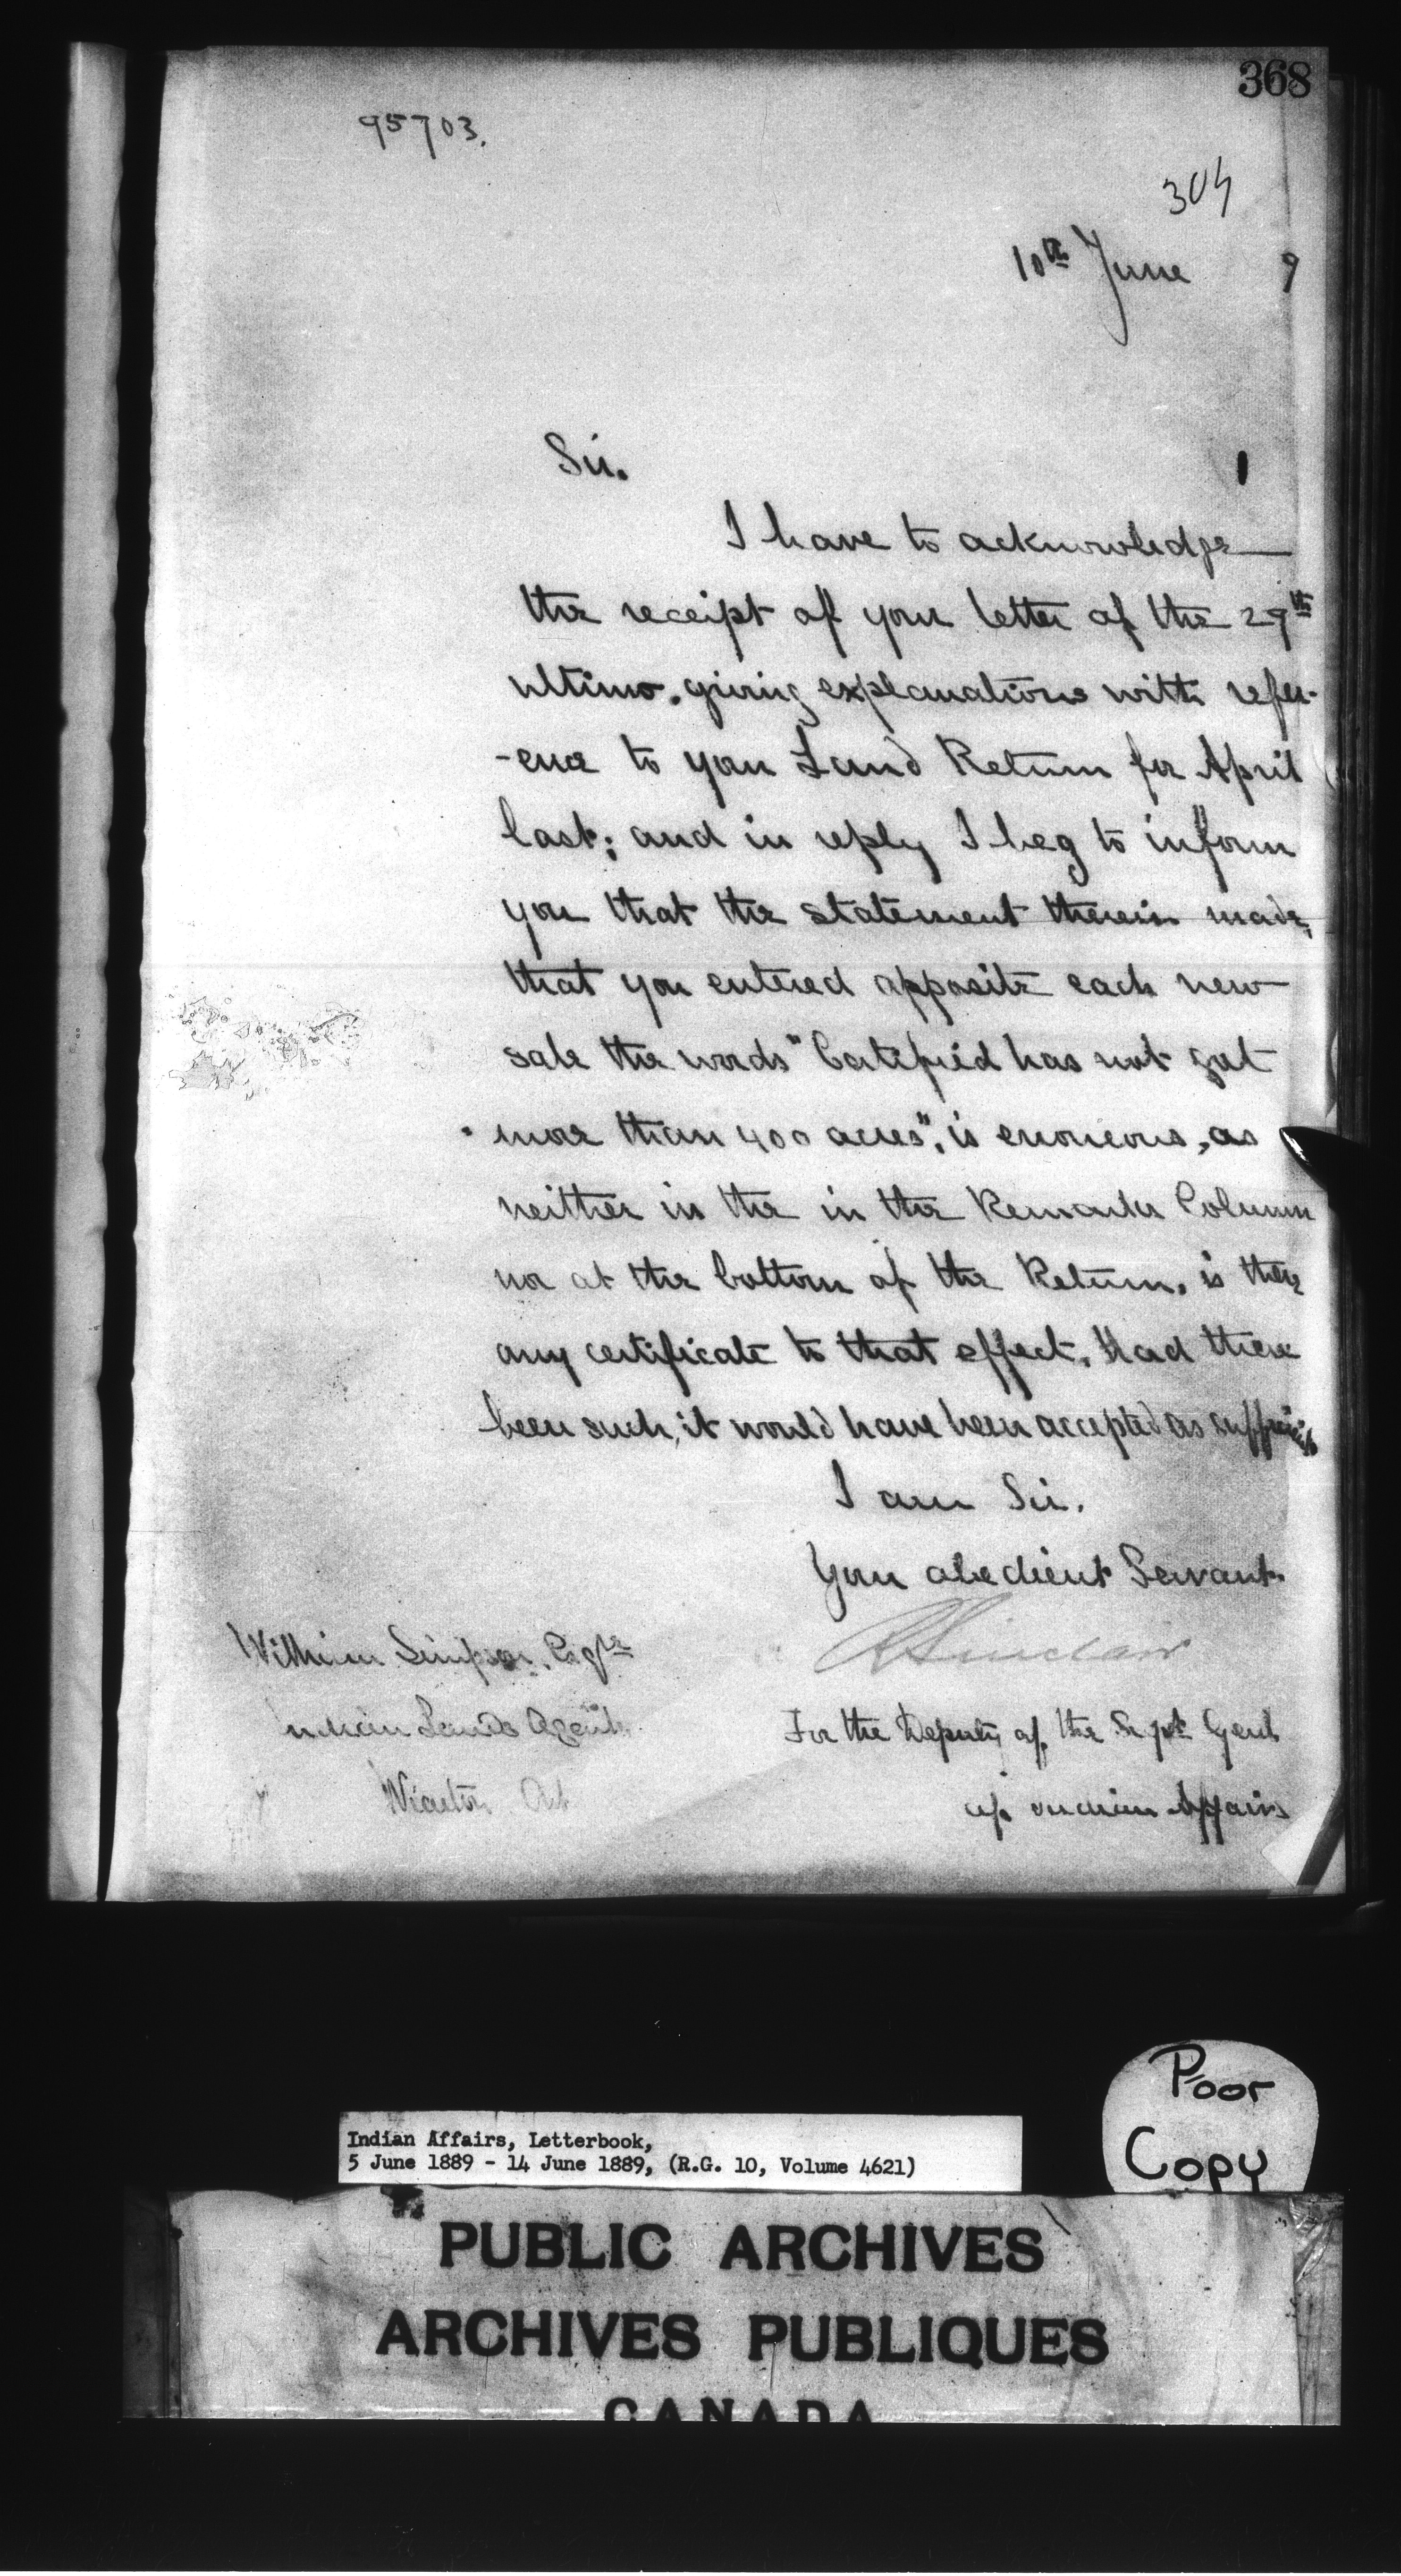 368
95703.
304
10th June 9
Sir.
I have to acknowledge
the receipt of your letter of the 29th
ultimo, giving explanations with refer-
-ence to your Land Return for April
last; and in reply I beg to inform
you that the statement therein made,
that you entered opposite each new
sale the words "Certified has not got
more than 400 acres", is erroneous, as
neither in the in the Remarks Column
nor at the bottom of the Return, is there
any certificate to that effect. Had there
been such, it would have been accepted as sufficient
I am Sir.
Your obedient Servant.
R Sinclair
William Simpson, Esqre
Indian Lands Agent.
For the Deputy of the Supt Genl
Wiarton Ont
of Indian Affairs
Poor
Copy
Indian Affairs, Letterbook,
5 June 1889 - 14 June 1889, (R.G. 10, Volume 4621)
PUBLIC ARCHIVES
ARCHIVES PUBLIQUES
CANADA